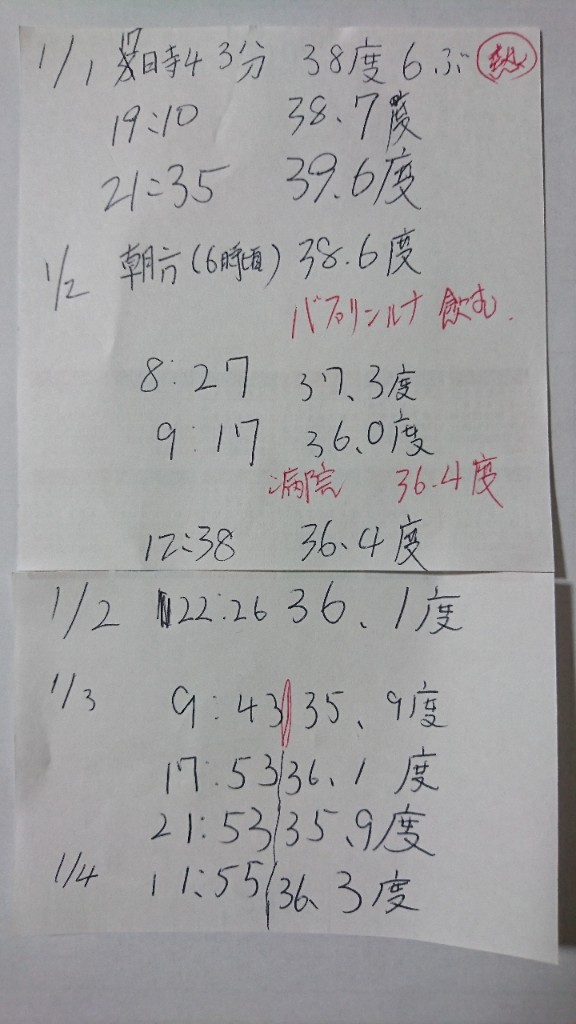 1/1 17時43分 38度6ぶ 熱
19:10 38.7度
21:35 39.6度
1/2 朝方(6時頃) 38.6度
バファリンルナ 飲む.
8:27 37.3度
9:17 36.0度
病院 36.4度
12:38 36.4度
1/2 22:26 36.1度
1/3 9:43 35.9度
17:53 36.1度
21:53 35.9度
1/4 11:55 36.3度